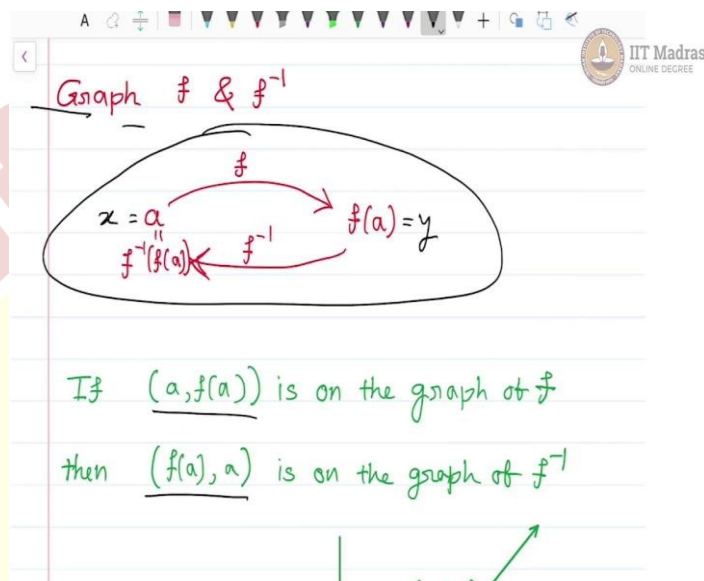 A
IIT Madras
ONLINE DEGREE
Graph f & f⁻¹
f
x = a
f(a) = y
f⁻¹(f(a))
f⁻¹
If (a, f(a)) is on the graph of f
then (f(a), a) is on the graph of f⁻¹